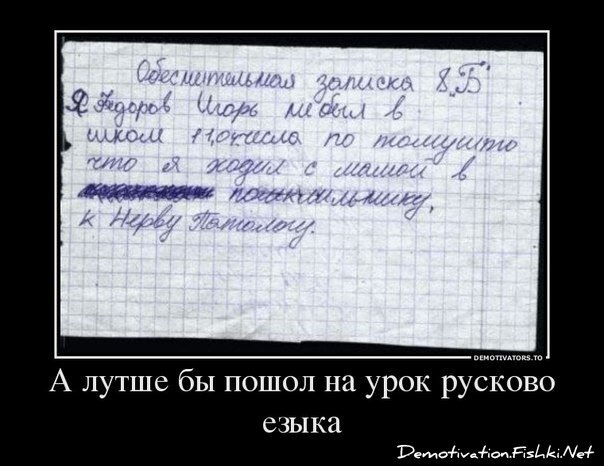 Обеснительная записка 8„Б"
Я Федоров Игорь небыл в
школи 11,04числа по томушто
что я ходил с мамой в
к Нерву Патологу.
DEMOTIVATORS.TO
А лутше бы пошол на урок русково
езыка
Demotivation.Fishki.Net